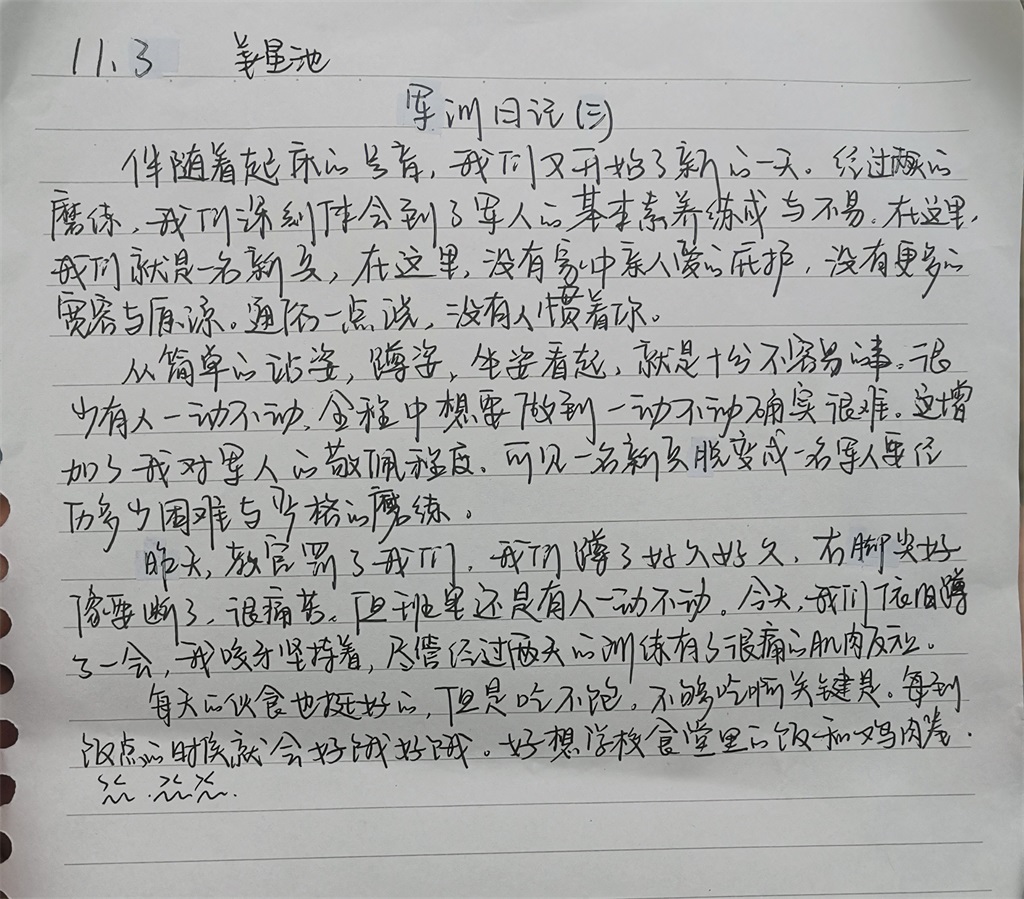 11.3 姜星池
军训日记(三)
伴随着起床的号音,我们又开始了新的一天。经过两天的
磨练,我们深刻体会到了军人的基本素养练成与不易。在这里,
我们就是一名新兵,在这里,没有家中亲人爱的庇护,没有更多的
宽容与原谅。通俗一点说,没有人惯着你。
从简单的站姿,蹲姿,坐姿看起,就是十分不容易的事。很
少有人一动不动,全程中想要做到一动不动确实很难。这增
加了我对军人的敬佩程度。可见一名新兵脱变成一名军人要经
历多少困难与严格的磨练。
昨天,教官罚了我们,我们蹲了好久好久,右脚尖好
像要断了,很痛苦。但班里还是有人一动不动。今天,我们依旧蹲
了一会,我咬牙坚持着,尽管经过两天的训练有了很痛的肌肉反应。
每天的伙食也挺好的,但是吃不饱。不够吃啊关键是。每到
饭点的时候就会好饿好饿。好想学校食堂里的饭和鸡肉卷.